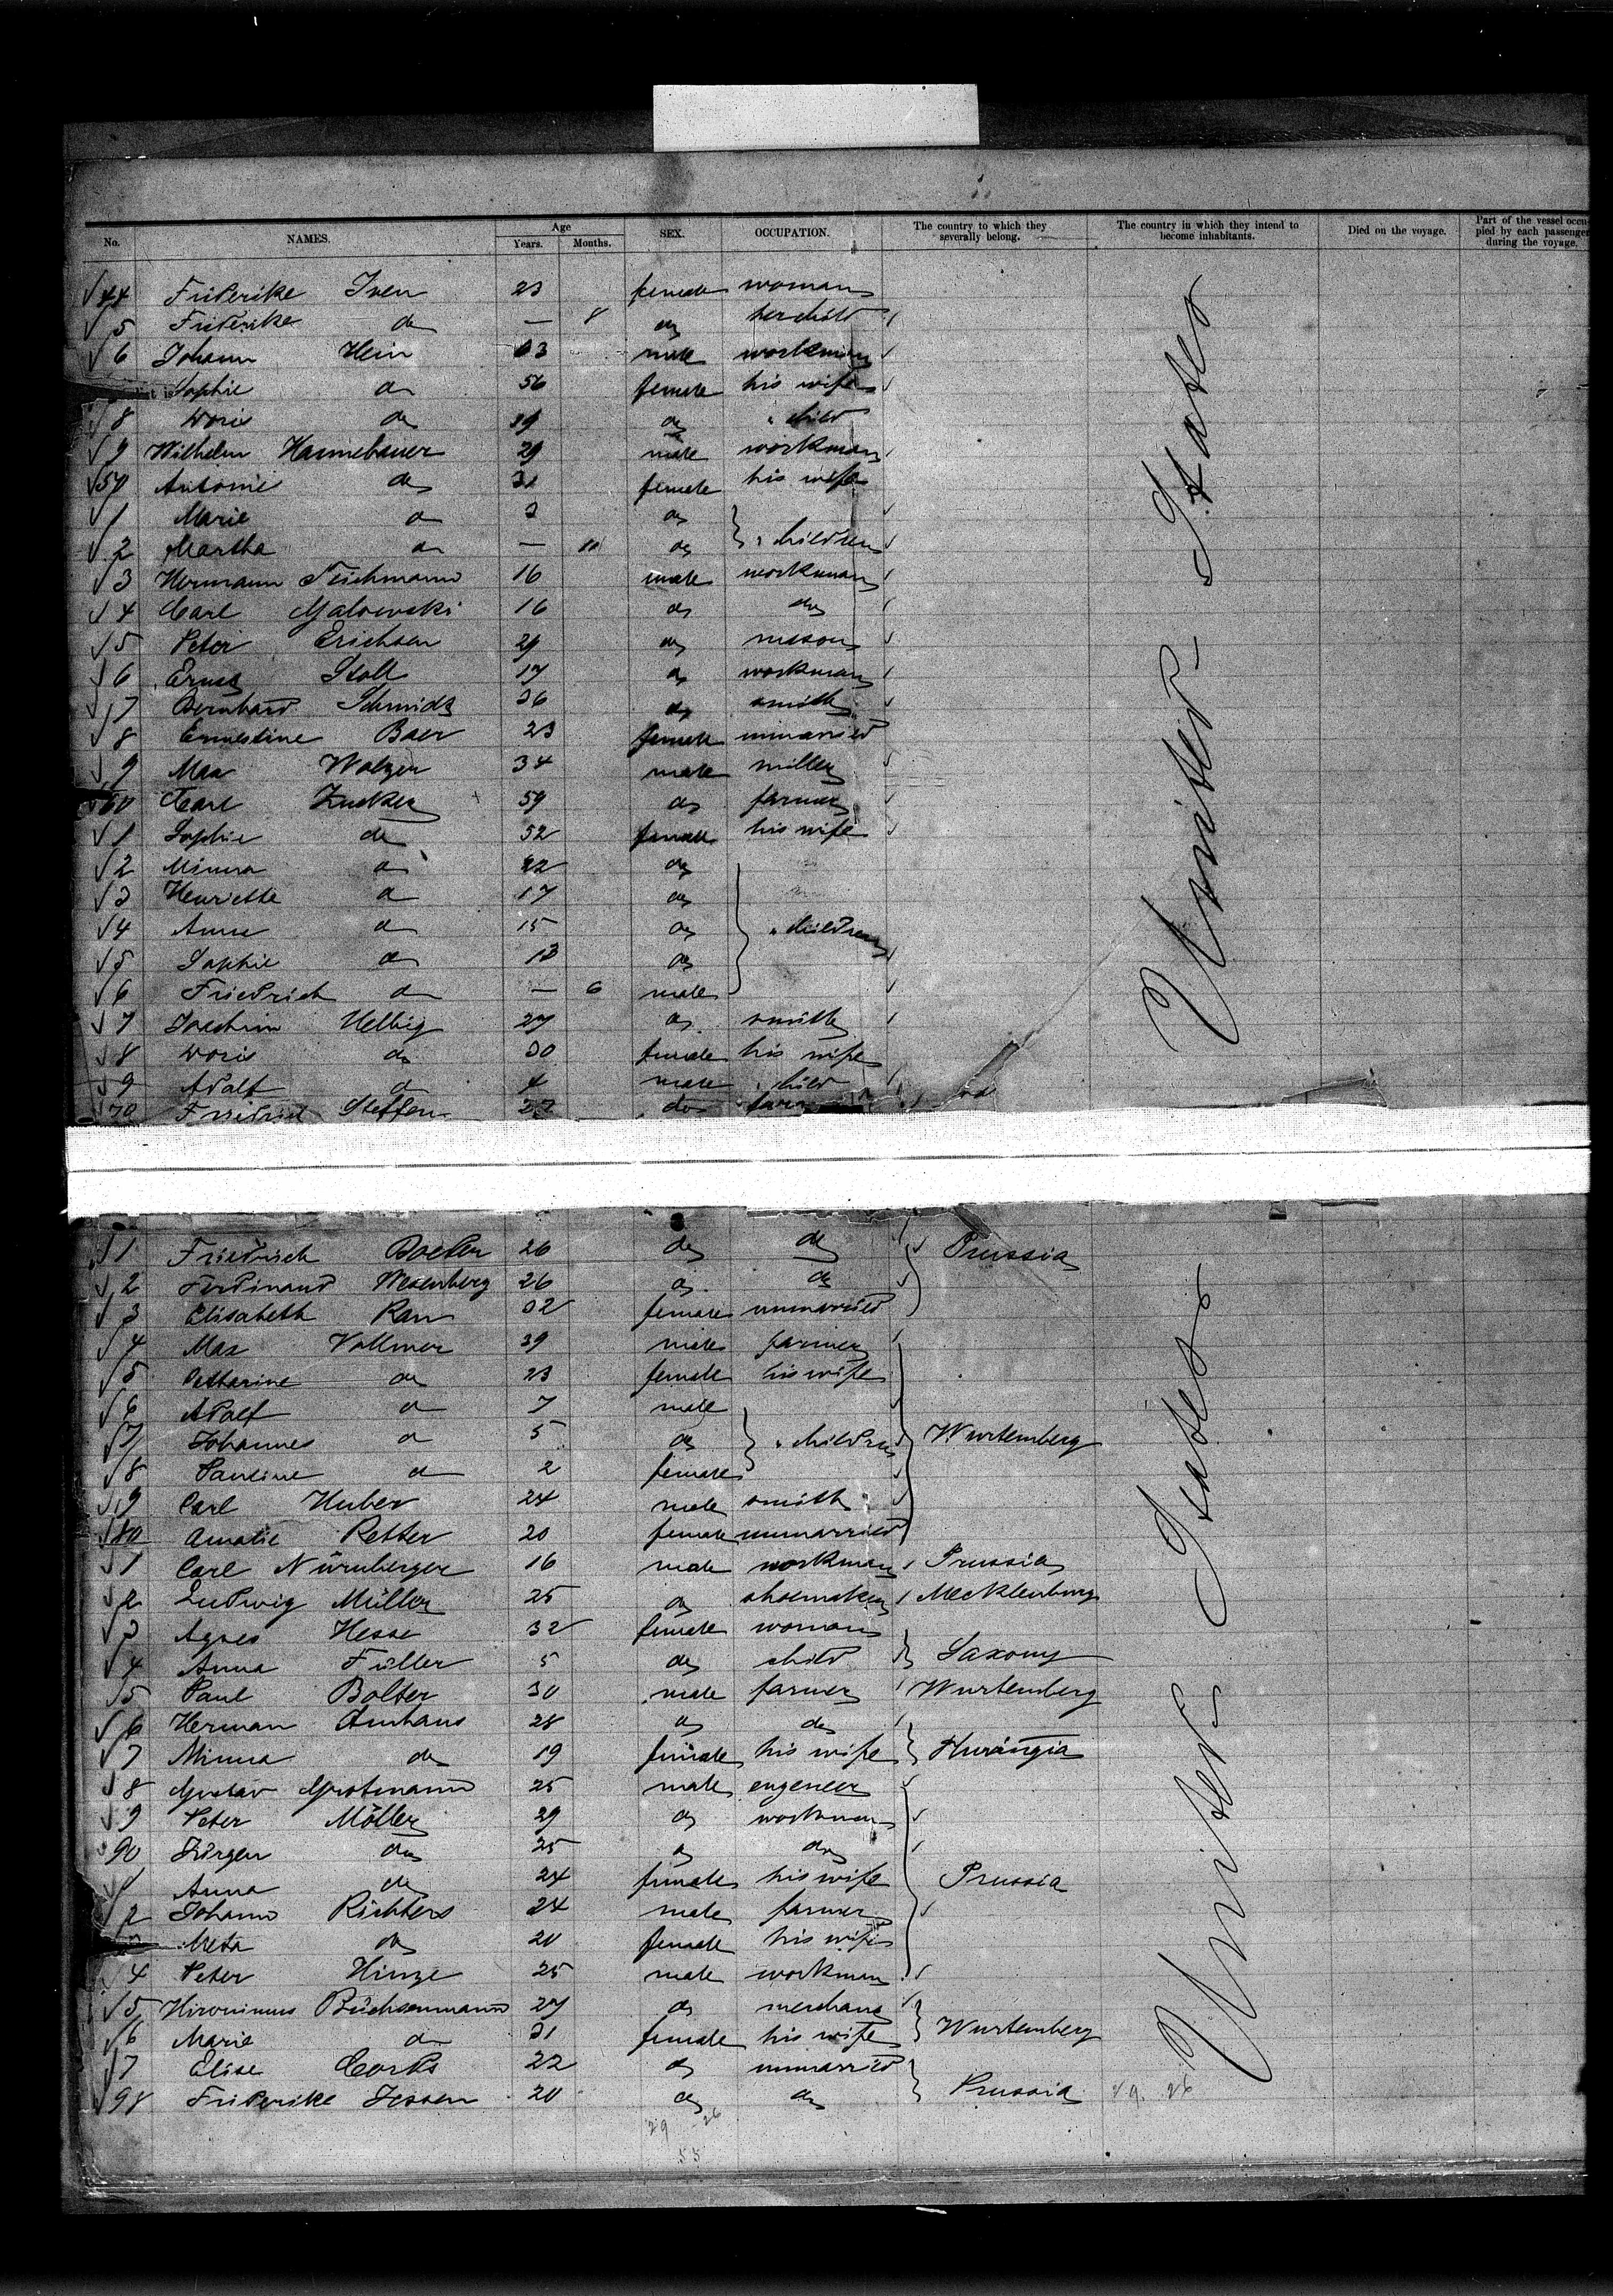 No. NAMES. Age Years. Months. SEX. OCCUPATION. The country to which they severally belong. The country in which they intend to become inhabitants. Died on the voyage. Part of the vessel occupied by each passenger during the voyage.
44 Friderike Iven 23 female woman
5 Friderike do — 8 do her child
6 Johann Hein male workman
Sophie do 56 female his wife
8 Doris do 19 do " child
9 Wilhelm Hannebauer 29 male workman
50 Antonie do 31 female his wife
1 Marie do 3 do
2 Martha do — 10 do " children
3 Hermann Teichmann 16 male workman
4 Carl 16 do do
5 Peter Erichsen 29 do
6 Ernst Stoll 17 do workman
7 Bernhard Schmidt 36 do smith
8 Ernestine Baer 23 female unmarried
9 Max Walzer 34 male miller
60 Carl Zucker 59 do farmer
1 Sophie do 52 female his wife
2 Minna do 22 do
3 Henriette do 17 do
4 Anna do 15 do " children
5 Sophie do 13 do
6 Friedrich do — 6 male
7 Joachim Helbig 27 do smith
8 Doris do 30 female his wife
9 Adolf do 4 male " child
70 Friedrich Steffen 27 do
United States
1 Friedrich 26 do do Prussia
2 Ferdinand Wesenberg 26 do do
3 Elisabeth Rau 32 female unmarried
4 Max Vollmer 39 male farmer
5 Catharine do 23 female his wife
6 Adolf do 7 male
7 Johannes do 5 do " children Wurtemberg
8 Pauline do 2 female
9 Carl Huber 24 male smith
80 Amalie Retter 20 female unmarried
1 Carl Nürnberger 16 male workman Prussia
2 Ludwig Müller 25 do shoemaker Mecklenburg
3 Agnes Hesse 32 female woman
4 Anna Füller 5 do child Saxony
5 Paul Bolter 30 male farmer Wurtemberg
6 Herman Amhaus 28 do do
7 Minna do 19 female his wife Thuringia
8 Gustav Grotmann 25 male engeneer
9 Peter Möller 29 do workman
90 Jürgen do 25 do do
1 Anna do 24 female his wife Prussia
2 Johann Richters 24 male farmer
Meta do 20 female his wife
4 Peter Hinze 25 male workman
5 Hironimus Büchsenmann 27 do merchant
6 Marie do 31 female his wife Wurtemberg
7 Elise Cords 22 do unmarried
98 Friderike Jessen 20 do do Prussia
29 26
55
United States